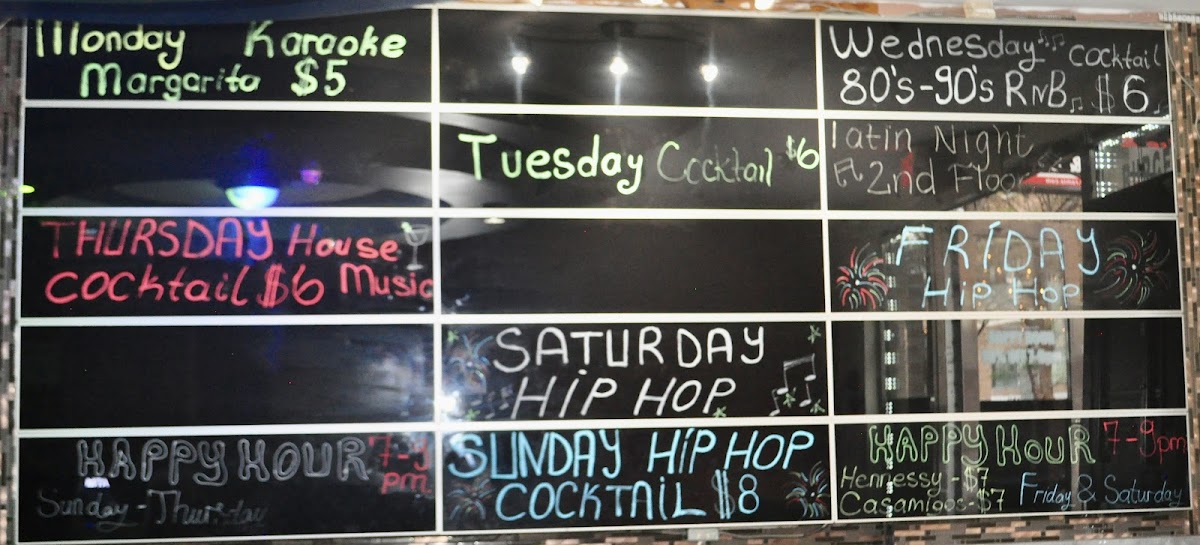 Monday Karaoke
Margarita $5
Wednesday cocktail
80's-90's RnB $6
Tuesday Cocktail $6
latin Night
2nd Floor
THURSDAY House
cocktail $6 Music
FRIDAY
HIP HOP
SATURDAY
HIP HOP
HAPPY HOUR 7-9
pm
Sunday-Thursday
SUNDAY HIP HOP
COCKTAIL $8
HAPPY HOUR 7-9pm
Hennessy-$7
Casamigos-$7 Friday & Saturday